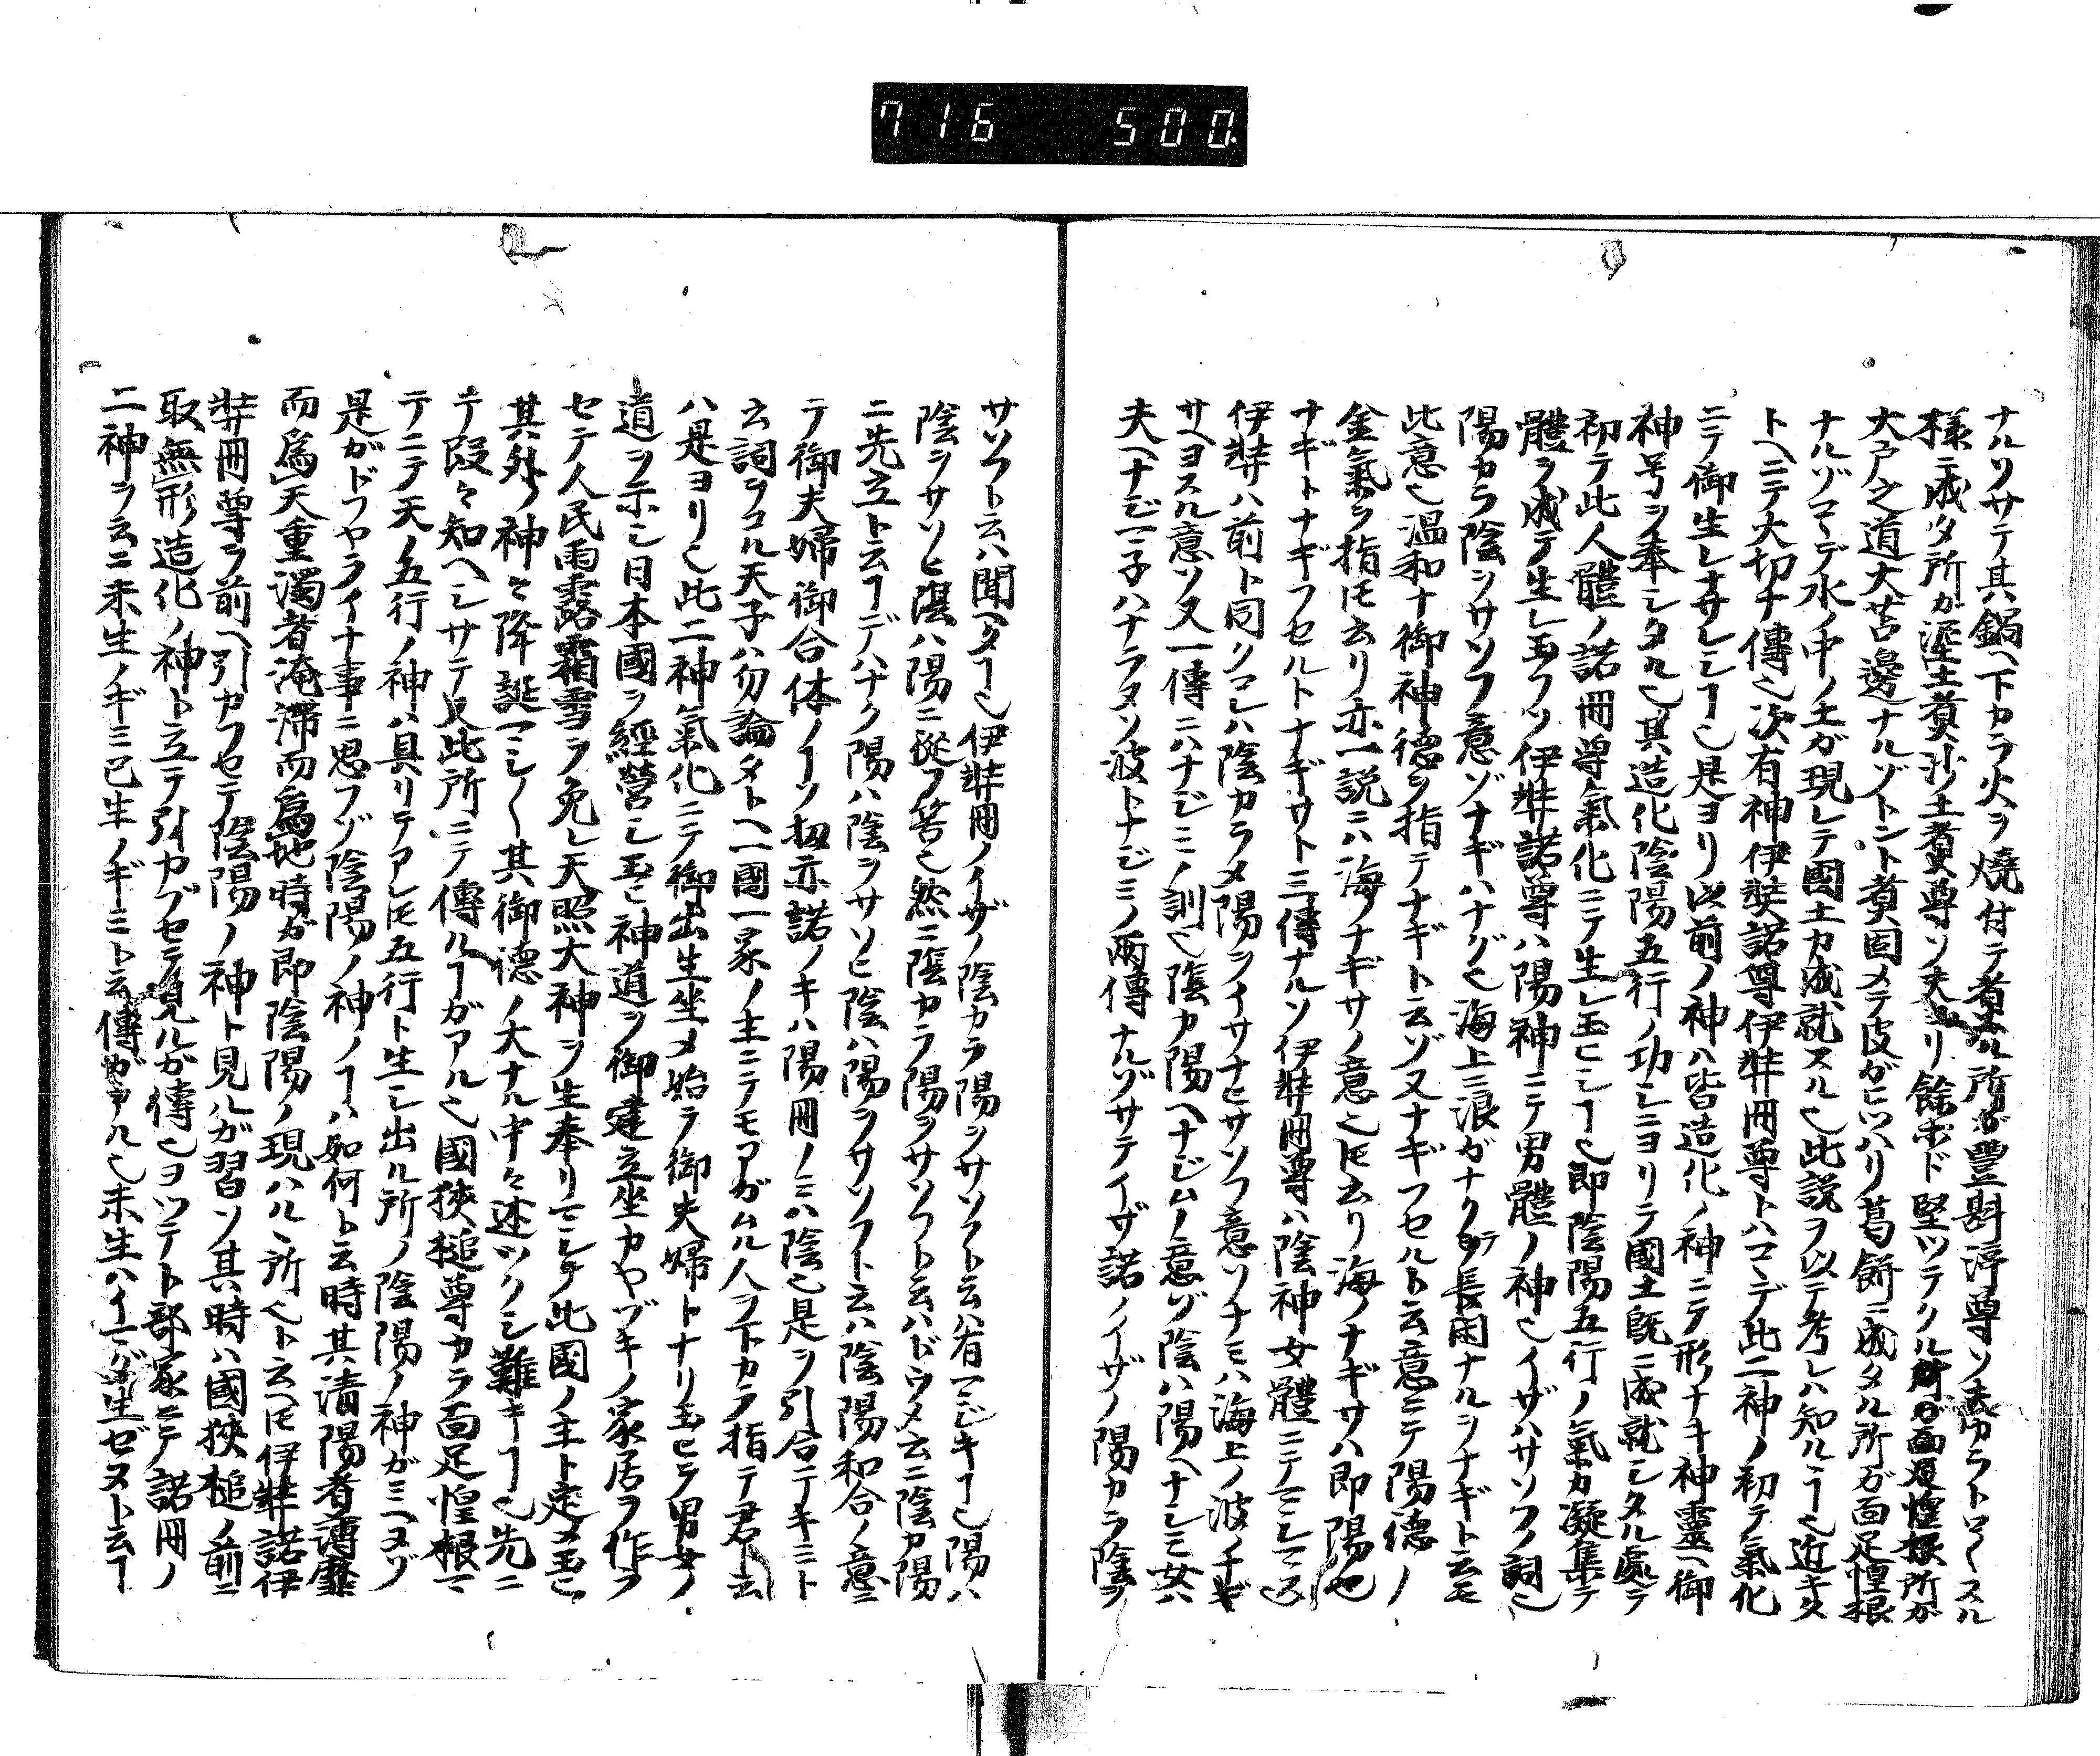 716 500.
ナルリサテ其鍋ヘ下カラ火ヲ焼付テ煮ル所ガ豊斟渟尊ソ夫カラトロ〱スル
様ニ成タ所カ埿土煑沙土煑尊ソ夫ヨリ餘ホド堅ツテクル所ガ面足惶根所ガ
大戸之道大苫邊ナルゾトント煑固メテ皮ガヒツハリ葛餅ニ成タル所ガ面足惶根
ナルゾコヽデ水ノ中ノ土ガ現レテ國土カ成就スルヿ此説ヲ以テ考レハ知ルヿ也近キタ
トヘニテ大切ナ傳也次有神伊奘諾尊伊弉冊尊トハコヽデ此二神ノ初テ氣化
ニテ御生レナサレシヿ也是ヨリ以前ノ神ハ皆造化ノ神ニテ形ナキ神靈ヘ御
神号ヲ奉シタル也其造化陰陽五行ノ功シニヨリテ國土既ニ成就シタル處ヲ
初テ此人體ノ諾冊尊氣化ニテ生レ玉ヒシヿ也即陰陽五行ノ氣カ凝集テ
體ヲ成テ生レ玉フソ伊弉諾尊ハ陽神ニテ男體ノ神也イザハサソフノ詞也
陽カラ陰ヲサソフ意ゾナギハナグ也海上ニ浪ガナクヲ長閑ナルヲナギト云モ
此意也温和ナ御神德ヲ指テナギト云ゾ又ナギフセルト云意ニテ陽德ノ
金氣ヲ指トモ云リ亦一説ニハ海ノナギサノ意也トモ云リ海ノナギサハ即陽也
ナギトナギフセルトナギサト三傳ナルソ伊弉冊尊ハ陰神女體ニテマシマス
伊弉ハ前ト同ソコレハ陰カラメ陽ヲイサナヒサソフ意ソナミハ海上ノ波ノナギ
サヘヨスル意ソ又一傳ニハナジミノ訓也陰カ陽ヘナジムノ意ゾ陰ハ陽ヘナレミ女ハ
夫ヘナジマ子ハナラヌソ波トナジミノ兩傳ナルゾサテイザ諾ノイザノ陽カラ陰ヲ
サソフト云ハ聞ヘタヿ也伊弉冊ノイザノ陰カラ陽ヲサソフト云ハ有マジキヿ也陽ハ
陰ヲサソヒ陰ハ陽ニ從フ筈也然ニ陰カラ陽ヲサソフト云ハドウメ云ニ陰カ陽
ニ先立ト云ヿデハナク陽ハ陰ヲサソヒ陰ハ陽ヲサソフト云ハ陰陽和合ノ意ニ
テ御夫婦御合体ノヿソ扨亦諾ノキハ陽冊ノミハ陰也是ヲ引合テキミト
云詞ヲコル天子ハ勿論タトヘ一國一家ノ主ニテモアガムル人ヲ下カラ指テ君ト云
ハ是ヨリ也此二神氣化ニテ御出生坐メ始テ御夫婦トナリ玉ヒテ男女ノ
道ヲ示シ日本國ヲ經營シ玉ヒ神道ヲ御建立坐カヤヅキノ家居ヲ作ラ
セテ人民雨露霜雪ヲ免レ天照大神ヲ生奉リマシテ此國ノ主ト定メ玉ヒ
其外ノ神々降誕マシ〱其御德ノ大ナル中々述ツクシ難キヿ也先ニ
テ段々知ヘシサテ又此所ニテ傳ルヿガアル也國狹槌尊カラ面足惶根マ
テニテ天ノ五行ノ神ハ具リテアレトモ五行ト生シ出ル所ノ陰陽ノ神ガミヘヌゾ
是ガドフヤライナ事ニ思フゾ陰陽ノ神ノヿハ如何ト云時其清陽者薄靡
而爲天重濁者淹滯而爲地時ガ即陰陽ノ現ハルヽ所也ト云ヘトモ伊弉諾伊
弉冊尊ヲ前ヘ引カフセテ陰陽ノ神ト見ルガ習ソ其時ハ國狹槌ノ前ニ
取無形造化ノ神ト立テ引カブセテ見ルガ傳也ヨツテト部家ニテ諾冊ノ
二神ヲ云ニ未生ノギミ已生ノギミト云傳ガアル也未生ハイマダ生ゼヌト云ヿ